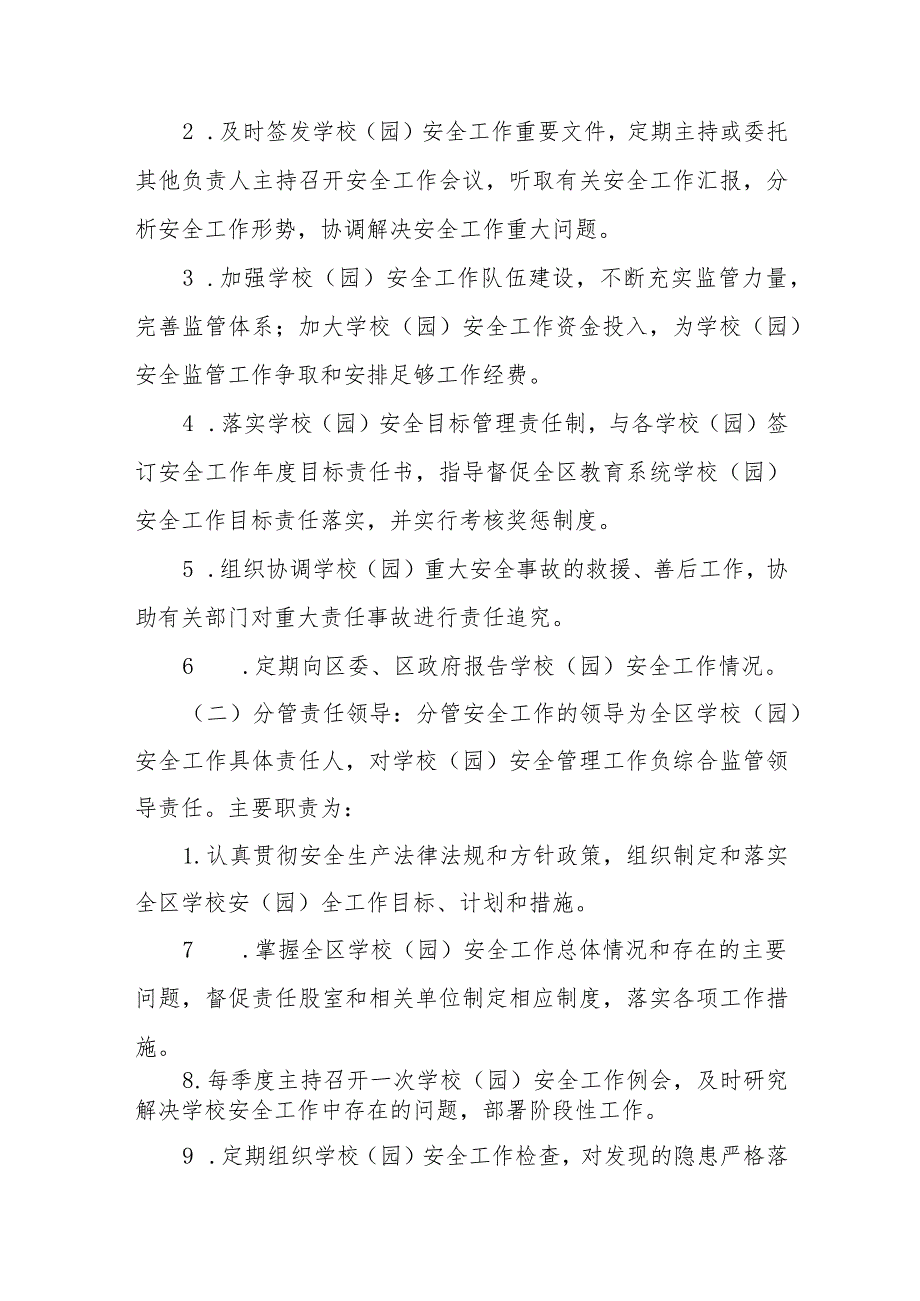 2 .及时签发学校（园）安全工作重要文件，定期主持或委托
其他负责人主持召开安全工作会议，听取有关安全工作汇报，分
析安全工作形势，协调解决安全工作重大问题。
3 .加强学校（园）安全工作队伍建设，不断充实监管力量，
完善监管体系；加大学校（园）安全工作资金投入，为学校（园）
安全监管工作争取和安排足够工作经费。
4 .落实学校（园）安全目标管理责任制，与各学校（园）签
订安全工作年度目标责任书，指导督促全区教育系统学校（园）
安全工作目标责任落实，并实行考核奖惩制度。
5 .组织协调学校（园）重大安全事故的救援、善后工作，协
助有关部门对重大责任事故进行责任追究。
6 .定期向区委、区政府报告学校（园）安全工作情况。
（二）分管责任领导：分管安全工作的领导为全区学校（园）
安全工作具体责任人，对学校（园）安全管理工作负综合监管领
导责任。主要职责为：
1.认真贯彻安全生产法律法规和方针政策，组织制定和落实
全区学校安（园）全工作目标、计划和措施。
7 .掌握全区学校（园）安全工作总体情况和存在的主要
问题，督促责任股室和相关单位制定相应制度，落实各项工作措
施。
8.每季度主持召开一次学校（园）安全工作例会，及时研究
解决学校安全工作中存在的问题，部署阶段性工作。
9 .定期组织学校（园）安全工作检查，对发现的隐患严格落